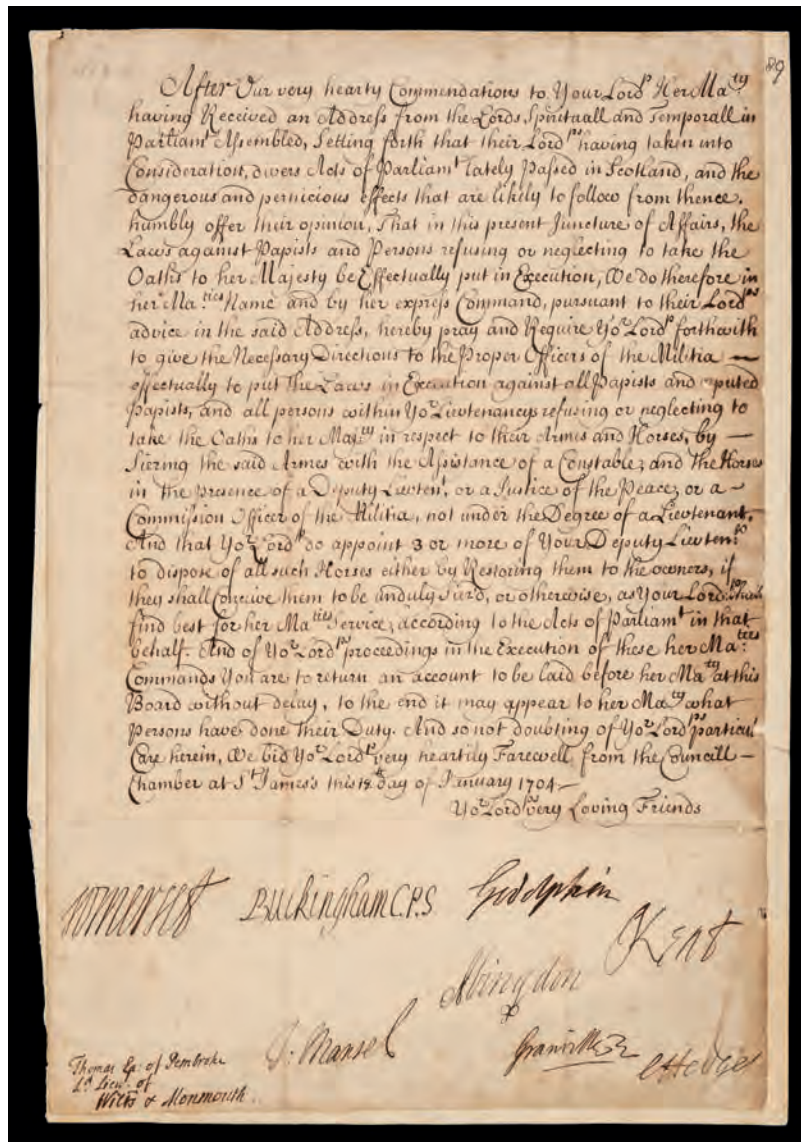 89
After Our very hearty Commendations to Your Lord.p Her Ma.ty
having Received an Address from the Lords Spirituall and Temporall in
Parliam.t Assembled, Setting forth that their Lord.ps having taken into
Consideration, divers Acts of Parliam.t lately Passed in Scotland, and the
dangerous and pernicious effects that are likely to follow from thence,
humbly offer their opinion, That in this present Juncture of Affairs, the
Laws against Papists and Persons refusing or neglecting to take the
Oaths to her Majesty be Effectually put in Execution, We do therefore in
her Ma.ties Name and by her express Command, pursuant to their Lord.ps
advice in the said Address, hereby pray and Require Yo.r Lord.p forthwith
to give the Necessary Directions to the Proper Officers of the Militia —
effectually to put the Laws in Execution against all Papists and reputed
Papists, and all persons within Yo.r Lieutenancys refusing or neglecting to
take the Oaths to her Maj.ty in respect to their Armes and Horses, by —
Siezing the said Armes with the Assistance of a Constable; and the Horses
in the presence of a Deputy Lieuten.t, or a Justice of the Peace, or a —
Commission Officer of the Militia, not under the Degree of a Lieutenant.
And that Yo.r Lord.p do appoint 3 or more of Your Deputy Lieuten.ts
to dispose of all such Horses either by Restoring them to the owners, if
they shall conceive them to be unduly Siezd, or otherwise, as Your Lord.ps shall
find best for her Ma.ties Service, according to the Acts of Parliam.t in that
behalf. And of Yo.r Lord.ps proceedings in the Execution of these her Ma.ties
Commands You are to return an account to be laid before her Ma.ty at this
Board without delay, to the end it may appear to her Ma.ty what
Persons have done their Duty. And so not doubting of Yo.r Lord.ps particul.r
Care herein, We bid Yo.r Lord.p very heartily Farewell from the Councill —
Chamber at S.t James's this 18.th day of January 1704 —
Yo.r Lord.ps very Loving Friends
Somerset Buckingham C.P.S. Godolphin
Kent
Abingdon
J: Mansel Granville C Hedges
Thomas Ea: of Pembroke
L.d Lieu.t of
Wilts & Monmouth.